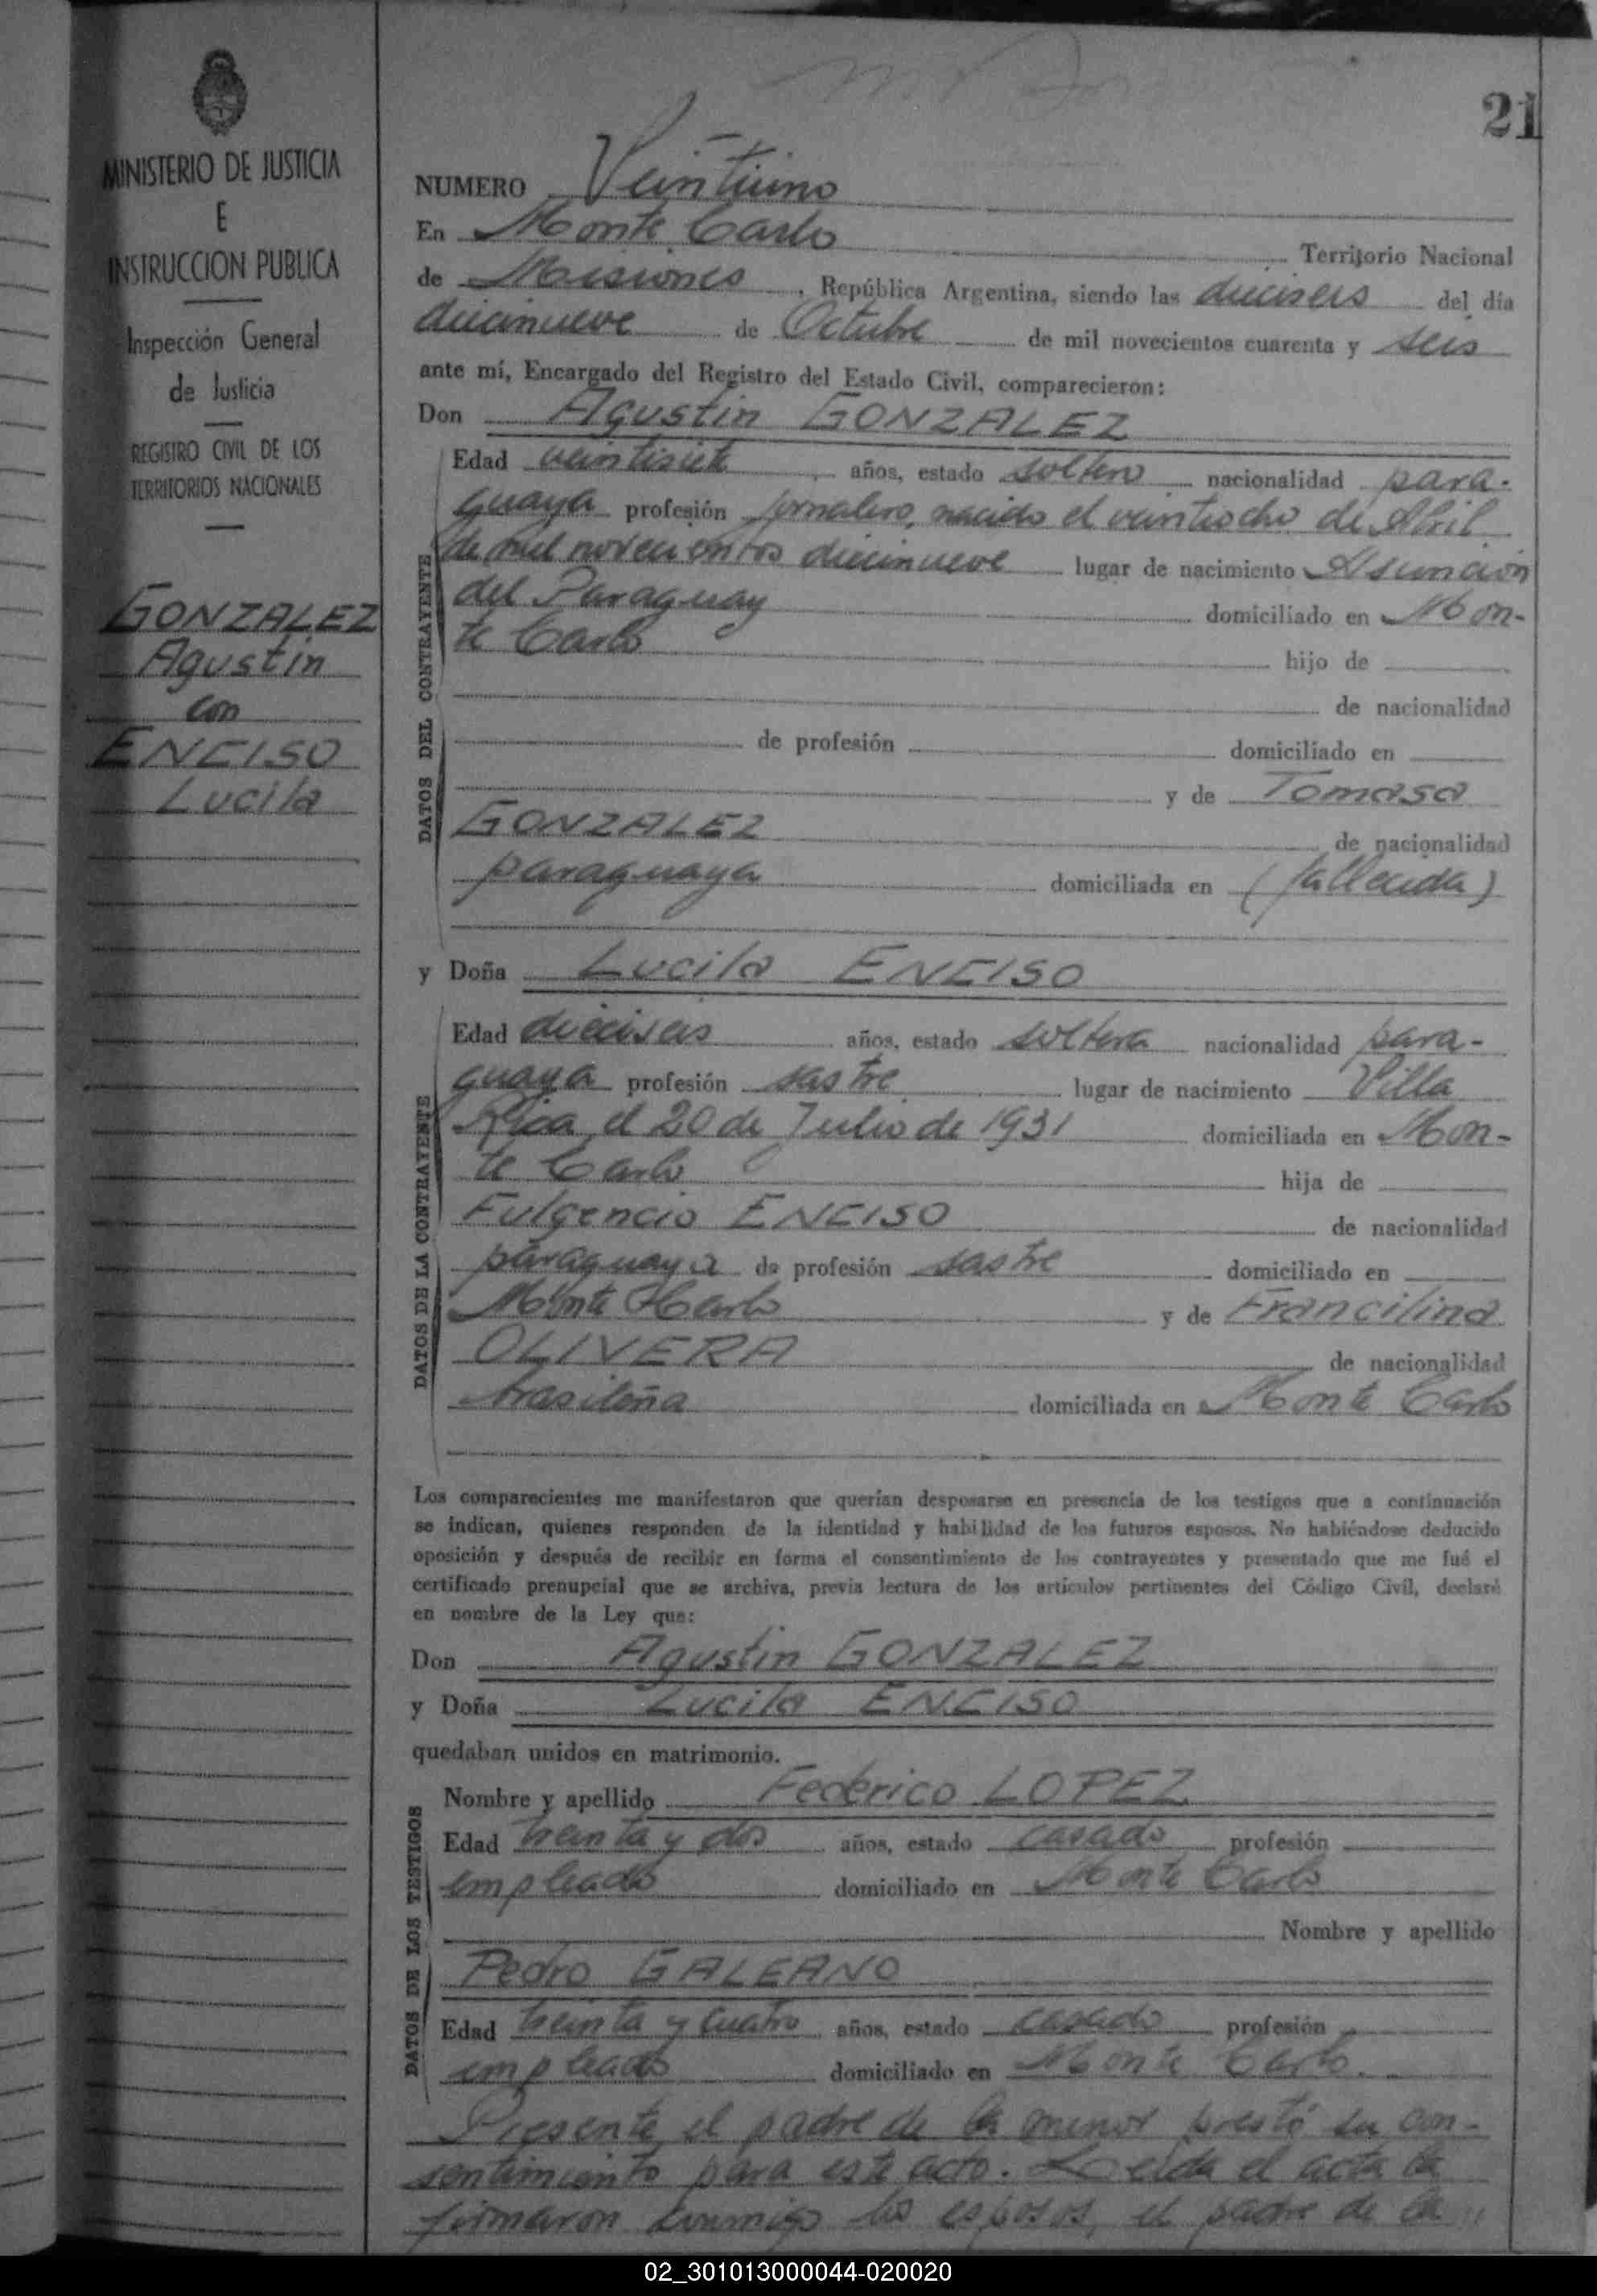 21
MINISTERIO DE JUSTICIA
E
INSTRUCCION PUBLICA
Inspección General
de Justicia
REGISTRO CIVIL DE LOS
TERRITORIOS NACIONALES
GONZALEZ
Agustin
con
ENCISO
Lucila
NUMERO Veintiuno
En Monte Carlo Territorio Nacional
de Misiones, República Argentina, siendo las dieciseis del día
diecinueve de Octubre de mil novecientos cuarenta y seis
ante mí, Encargado del Registro del Estado Civil, comparecieron:
Don Agustin GONZALEZ
DATOS DEL CONTRAYENTE
Edad veintisiete años, estado soltero nacionalidad para-
guaya profesión jornalero, nacido el veintiocho de Abril
de mil novecientos diecinueve lugar de nacimiento Asunción
del Paraguay domiciliado en Mon-
te Carlo hijo de
de nacionalidad
de profesión domiciliado en
y de Tomasa
GONZALEZ de nacionalidad
paraguaya domiciliada en (fallecida)
y Doña Lucila ENCISO
DATOS DE LA CONTRAYENTE
Edad dieciseis años, estado soltera nacionalidad para-
guaya profesión sastre lugar de nacimiento Villa
Rica, el 20 de Julio de 1931 domiciliada en Mon-
te Carlo hija de
Fulgencio ENCISO de nacionalidad
paraguaya de profesión sastre domiciliado en
Monte Carlo y de Francilina
OLIVERA de nacionalidad
brasileña domiciliada en Monte Carlo
Los comparecientes me manifestaron que querían desposarse en presencia de los testigos que a continuación
se indican, quienes responden de la identidad y habilidad de los futuros esposos. No habiéndose deducido
oposición y después de recibir en forma el consentimiento de los contrayentes y presentado que me fué el
certificado prenupcial que se archiva, previa lectura de los artículos pertinentes del Código Civil, declaré
en nombre de la Ley que:
Don Agustin GONZALEZ
y Doña Lucila ENCISO
quedaban unidos en matrimonio.
DATOS DE LOS TESTIGOS
Nombre y apellido Federico LOPEZ
Edad treinta y dos años, estado casado profesión
empleado domiciliado en Monte Carlo
Nombre y apellido
Pedro GALEANO
Edad treinta y cuatro años, estado casado profesión
empleado domiciliado en Monte Carlo.
Presente el padre de la menor prestó su con-
sentimiento para este acto. Leída el acta la
firmaron conmigo los esposos, el padre de la
02_301013000044-020020